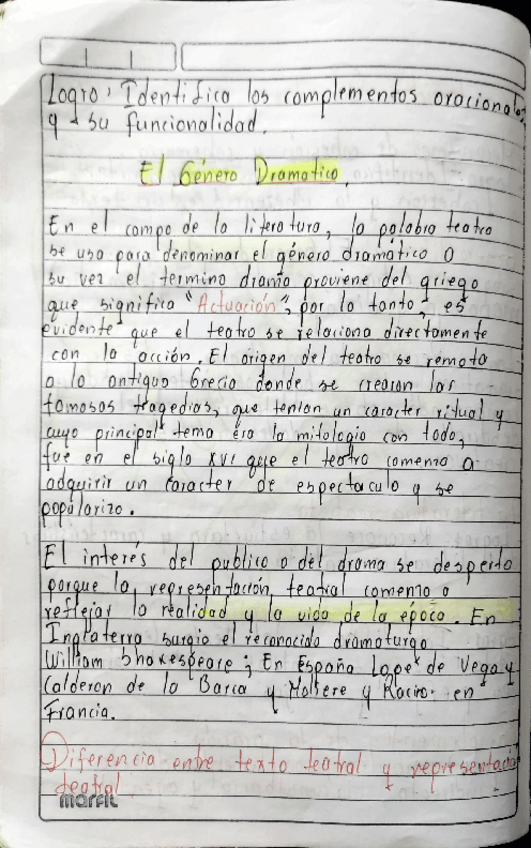 Logro: Identifica los complementos oracionales
y su funcionalidad.
El Género Dramatico.
En el campo de la literatura, la palabra teatro
se usa para denominar el género dramático a
su vez el termino drama proviene del griego
que significa "Actuación", por lo tanto, es
evidente que el teatro se relaciona directamente
con la acción. El origen del teatro se remota
a la antigua Grecia donde se crearon las
famosas tragedias, que tenian un caracter ritual y
cuyo principal tema era la mitologia con todo,
fue en el siglo XVI que el teatro comenzo a
adquirir un caracter de espectaculo y se
popularizo.
El interés del publico a del drama se desperto
porque la representación teatral comenzo a
reflejar la realidad y la vida de la época. En
Inglaterra surgio el reconocido dramaturgo
William Shakespeare; En España Lope de Vega y
Calderon de la Barca y Moliere y Racine en
Francia.
Diferencia entre texto teatral y representación
teatral.
marfil